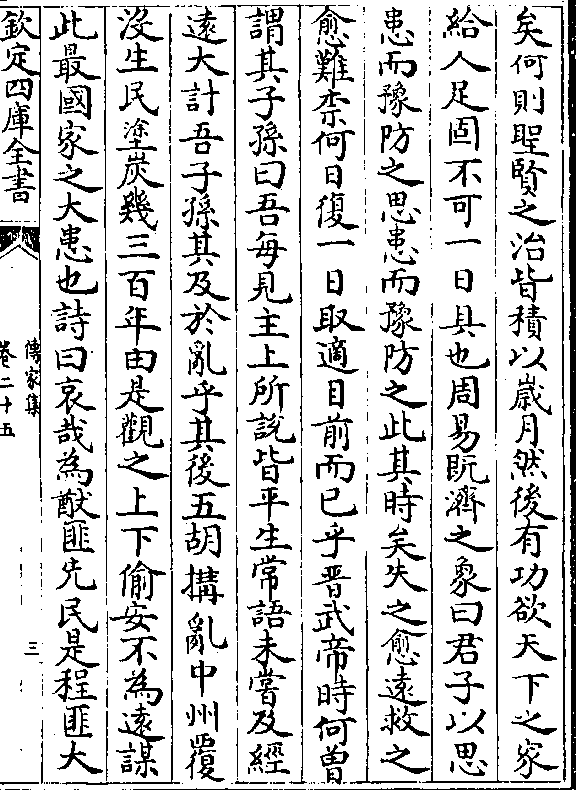 矣何則聖賢之治皆積以嵗月然後有功欲天下之家
給人足固不可一日具也周易既濟之象曰君子以思
患而豫防之思患而豫防之此其時矣失之愈逺救之
愈難柰何日復一日取適目前而已乎晉武帝時何曽
謂其子孫曰吾每見主上所説皆平生常語未嘗及經
逺大計吾子孫其及於亂乎其後五胡搆亂中州覆
没生民塗炭幾三百年由是觀之上下偷安不為逺謀
此最國家之大患也詩曰哀哉為猷匪先民是程匪大
欽定四庫全書
傳家集
卷二十五
三